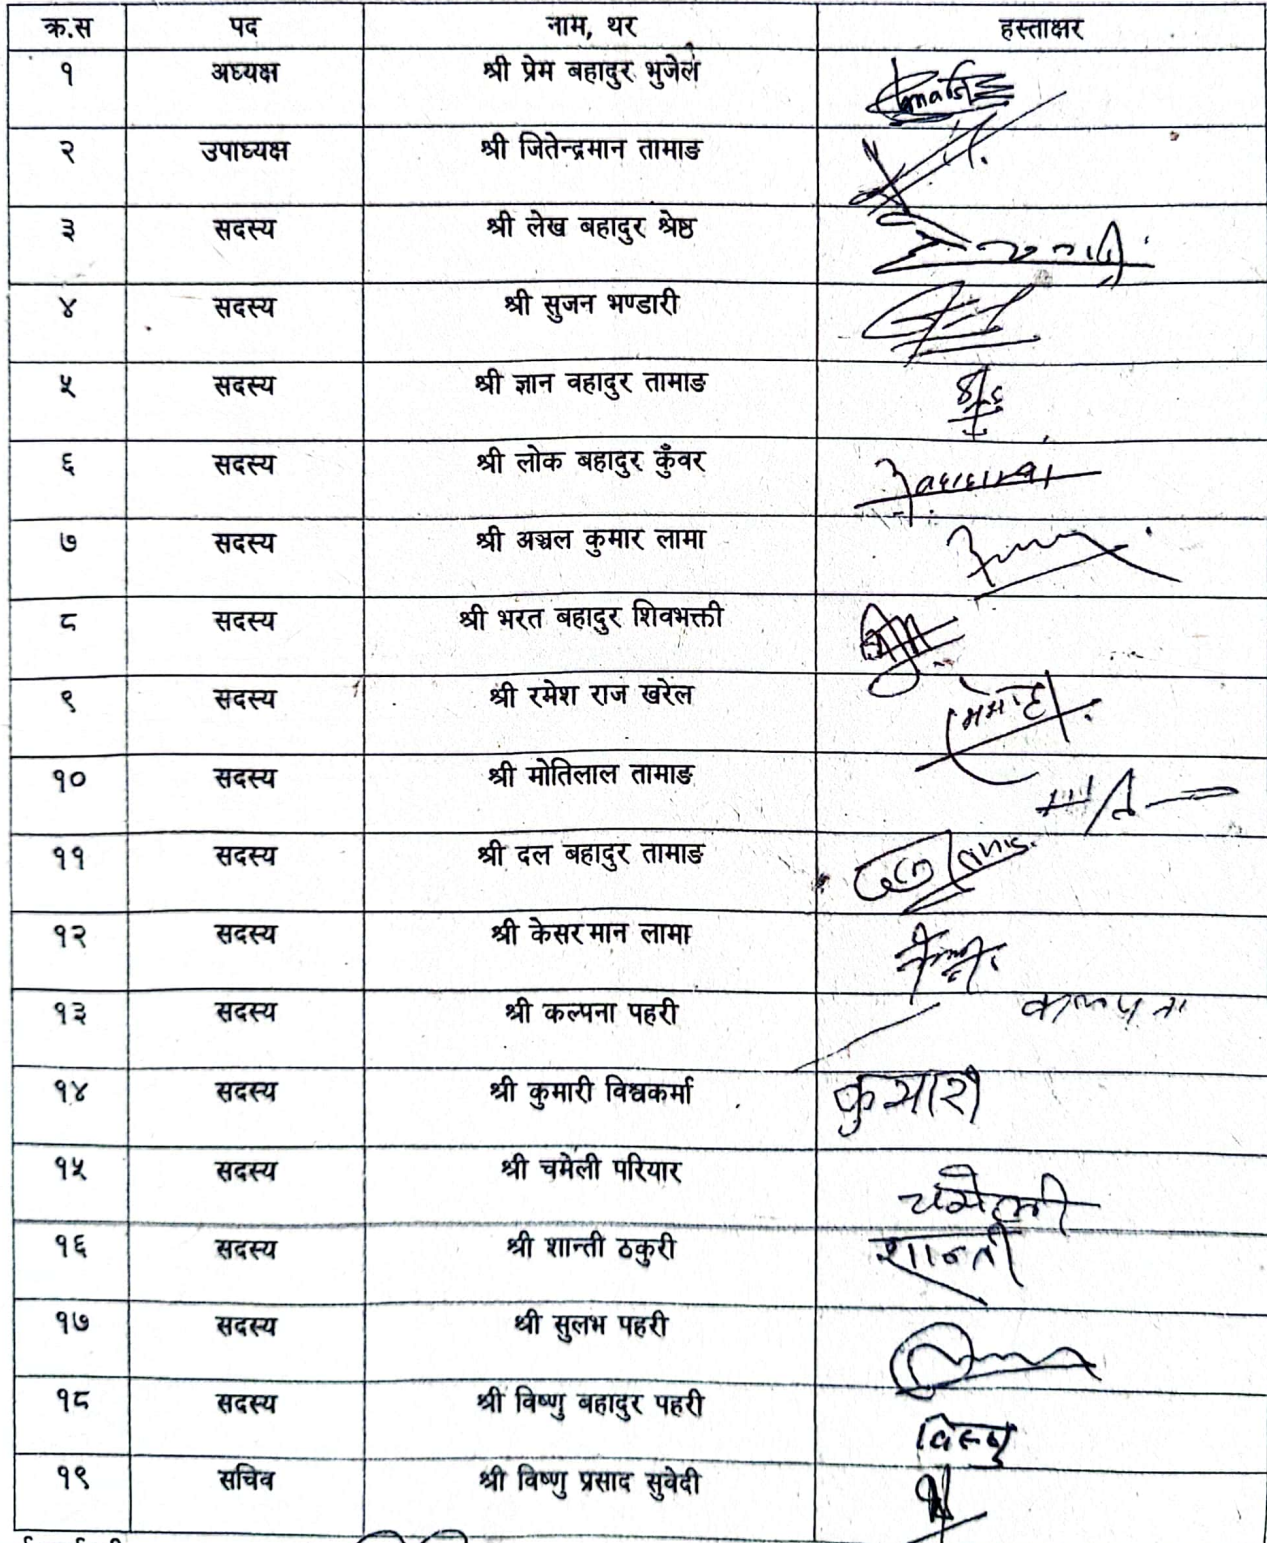 क्र.स पद नाम, थर हस्ताक्षर
१ अध्यक्ष श्री प्रेम बहादुर भुजेल
२ उपाध्यक्ष श्री जितेन्द्रमान तामाङ
३ सदस्य श्री लेख बहादुर श्रेष्ठ
४ सदस्य श्री सुजन भण्डारी
५ सदस्य श्री ज्ञान वहादुर तामाङ
६ सदस्य श्री लोक बहादुर कुँवर
७ सदस्य श्री अञ्चल कुमार लामा
८ सदस्य श्री भरत बहादुर शिवभक्ती
९ सदस्य श्री रमेश राज खरेल
१० सदस्य श्री मोतिलाल तामाङ
११ सदस्य श्री दल बहादुर तामाङ
१२ सदस्य श्री केसरमान लामा
१३ सदस्य श्री कल्पना पहरी कल्पना
१४ सदस्य श्री कुमारी विश्वकर्मा कुमारी
१५ सदस्य श्री चमेली परियार चमेली
१६ सदस्य श्री शान्ती ठकुरी शान्ती
१७ सदस्य श्री सुलभ पहरी
१८ सदस्य श्री विष्णु बहादुर पहरी विष्णु
१९ सचिव श्री विष्णु प्रसाद सुवेदी